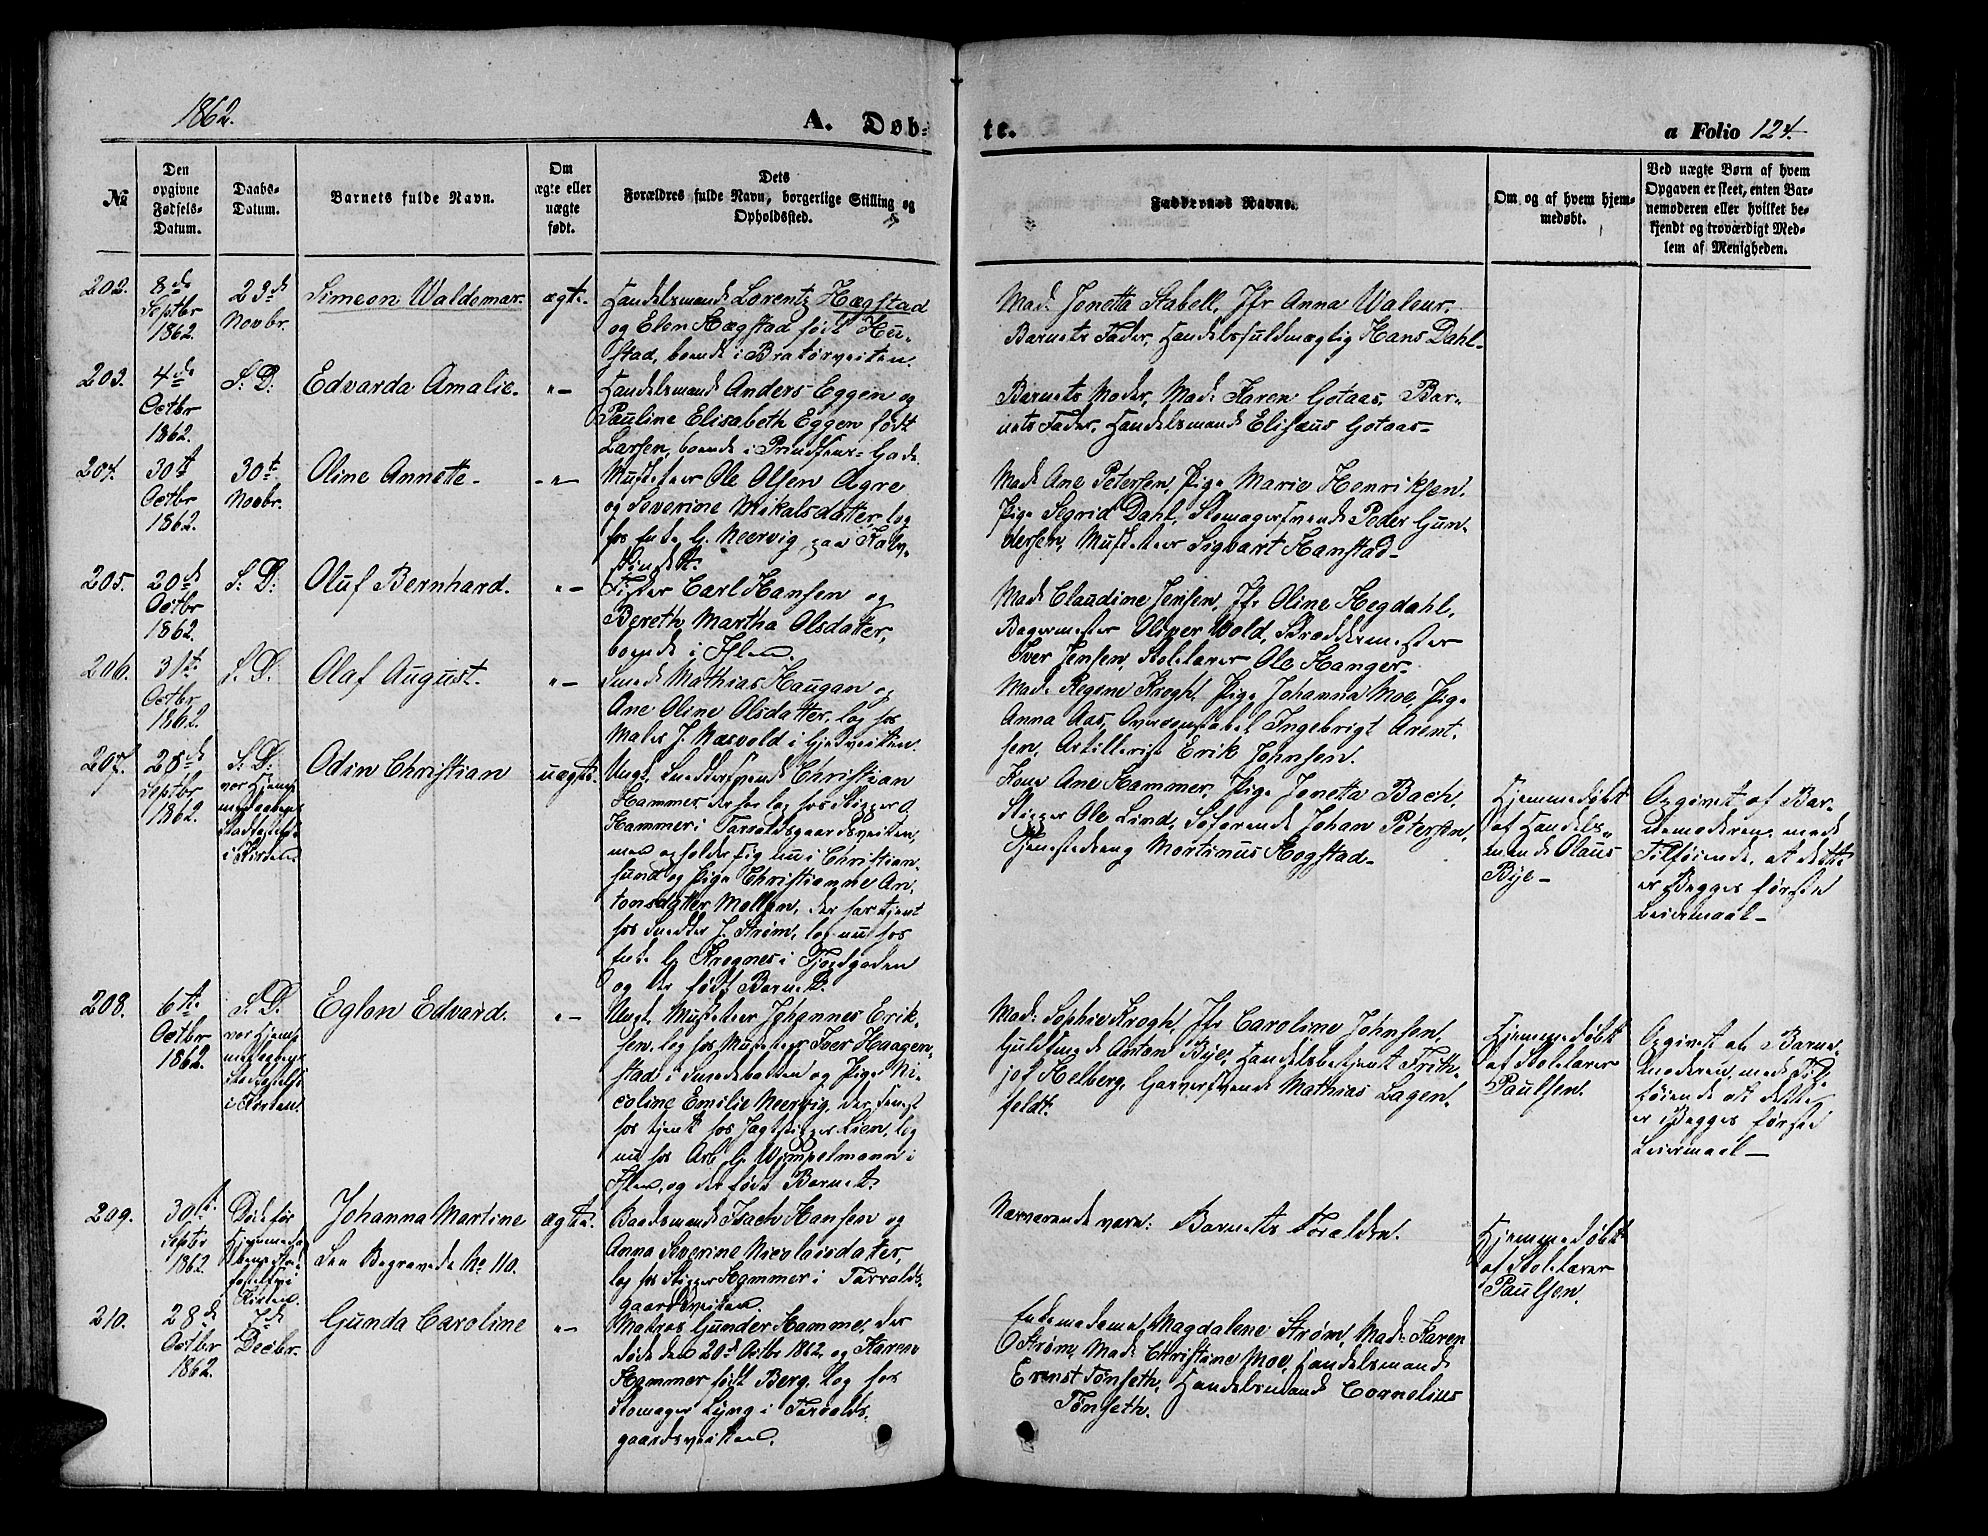 1862.
A. Døb-
te.
a Folio 124.
№
Den
opgivne
Fødsels-
Datum.
Daabs-
Datum.
Barnets fulde Navn.
Om
ægte eller
uægte
født.
Dets
Forældres fulde Navn, borgerlige Stilling og
Opholdssted.
Faddernes Navne.
Om og af hvem hjem-
medøbt.
Ved uægte Børn af hvem
Opgaven er skeet, enten Bar-
nemoderen eller hvilket be-
kjendt og troværdigt Med-
lem af Menigheden.
202.
8de
Septbr
1862.
23de
Novbr.
Simeon Waldemar.
ægte.
Handelsmand Lorentz Hægstad
og Elen Hægstad født Hu-
stad, boende i Bratørveiten.
Mad: Jonetta Stabell, Jfr Anna Waleur,
Barnets Fader, Handelsfuldmægtig Hans Dahl-
203.
4de
Octbr
1862.
S. D:
Edvarda Amalie.
"-
Handelsmand Anders Eggen og
Pauline Elisabeth Eggen født
Larsen, boende i Prindsens-Gade.
Barnets Moder, Mad: Karen Gotaas, Bar-
nets Fader, Handelsmand Elisæus Gotaas-
204.
30te
Octbr
1862.
30te
Novbr.
Oline Annette-
-"-
Musketeer Ole Olsen Agre
og Severine Mikalsdatter, log
hos Enke G. Meervig paa Kalv-
skindet.
Mad: Ane Petersen, Pige Marie Henriksen,
Pige Segrid Dahl, Skomagersvend Peder Gun-
dersen, Musketeer Sigvart Hanstad-
205.
20de
Octbr
1862.
S. D:
Oluf Bernhard.
"-
Fisker Carl Hansen og
Bereth Martha Olsdatter,
boende i Ihlen.
Mad: Claudine Jensen, Jfr Oline Hegdahl,
Bagermester Oliver Wold, Skreddermester
Iver Jensen, Skolelærer Ole Hanger-
206.
31te
Octbr
1862.
S. D:
Olaf August.
"-
Smed Mathias Haugan og
Ane Oline Olsdatter, log hos
Maler J. Næsvold i Gjedveiten.
Mad: Regine Krogh, Pige Johanna Moe, Pige
Anna Aas, Ingebrigt Arent-
sen, Artillerist Erik Johnsen.
207.
28de
Septbr
1862.
S. D:
var Hjemme-
i Kirken
Odin Christian
uægte.
Ungk. Smedsvend Christian
Hammer, der før log hos Skipper O
Hammer i Tarvaldsgaardsveiten,
men opholder sig nu i Christian-
sund og Pige Christianne An-
tonsdatter Mollan, der har tjent
hos Smed J. Strøm, log nu hos
Enke G. Kregnes i Fjordgaden
og der født Barnet.
Kone Ane Hammer, Pige Jonetta Bach,
Skipper Ole Lind, Søfarende Johan Petersen,
Tjenestedreng Martinus Hogstad-
Hjemmedøbt
af Handels-
mand Olaus
Bye-
Opgivet af Bar-
nemoderen, med
Tilføiende, at dette
er Begges første
Leiermaal-
208.
6te
Octbr
1862.
S. D.
var Hjemme-
i Kirken.
Eglon Edvard.
"-
Ungk. Musketeer Johannes Erik-
sen, log hos Musketeer Iver Haagen-
stad i Smedebakken og Pige Ni-
coline Emilie Meervig, der senest
har tjent hos Jagtskipper Lien, log
nu hos Arb. G. Wympelmann i
Ihlen, og der født Barnet.
Mad: Sophie Krogh, Jfr Caroline Johnsen,
Guldsmed Anton Bye, Handelsbetjent Frith-
jof Helberg, Garversvend Mathias Lagen-
feldt.
Hjemmedøbt
af Skolelærer
Paulsen.
Opgivet af Barne-
moderen, med Til-
føiende at dette
er Begges første
Leiermaal-
209.
30te
Septbr
1862.
Døde før
Kirken.
Johanna Martine
See Begravede No 110.
ægte.
Baadsmand Isach Hansen og
Anna Severine Nicolaisdatter,
log hos Skipper Hammer i Tarvalds-
gaardsveiten.
Nærværende vare: Barnets Forældre.
Hjemmedøbt
af Skolelærer
Paulsen.
210.
28de
Octbr
1862.
7de
Decbr.
Gunda Caroline
"-
Matros Gunder Hammer, der
døde den 20de Octbr 1862, og Karen
Hammer født Berg, log hos
Skomager Lyng i Tarvalds-
gaardsveiten.
Enkemadame Magdalene Strøm, Mad: Karen
Strøm, Mad: Christine Moe, Handelsmand
Ernst Tønseth, Handelsmand Cornelius
Tønseth.